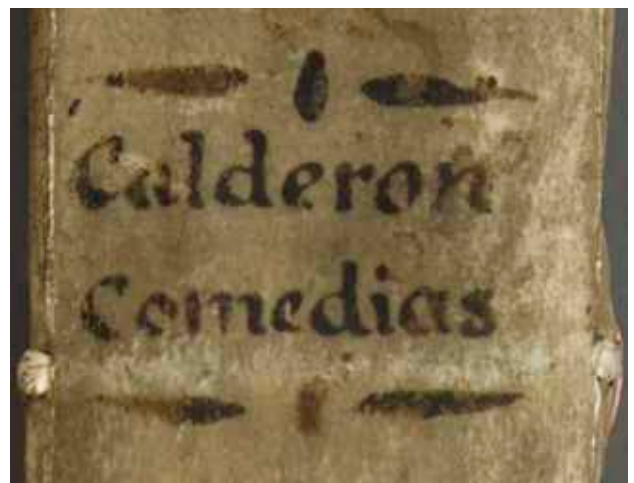 Calderon
Comedias